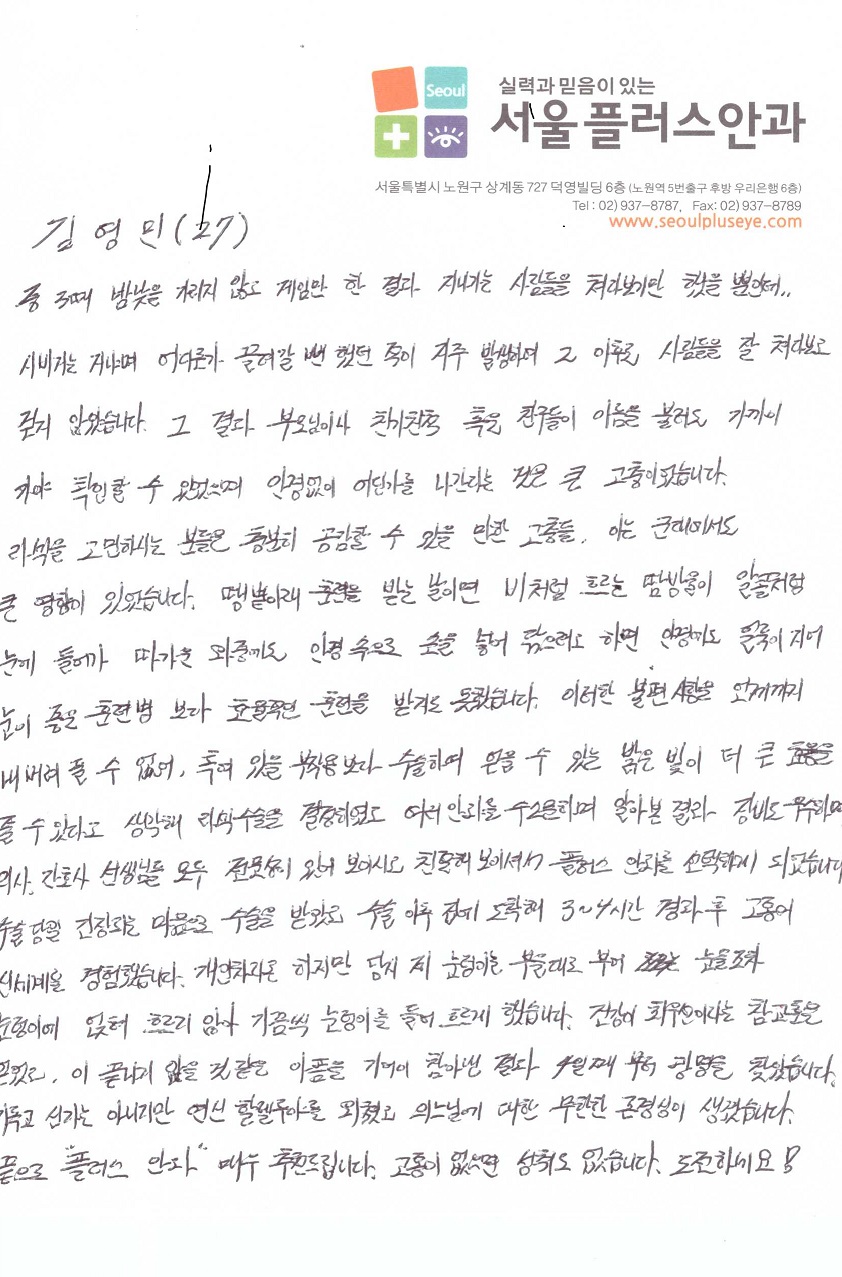 Seoul
실력과 믿음이 있는
서울플러스안과
서울특별시 노원구 상계동 727 덕영빌딩 6층 (노원역 5번출구 후방 우리은행 6층)
Tel : 02) 937-8787, Fax: 02) 937-8789
www.seoulpluseye.com
김영민(27)
중 3때 밤낮을 가리지 않고 게임만 한 결과 지나가는 사람들을 쳐다보기만 했을 뿐인데..
시비거는 거냐며 어디론가 끌려갈 뻔 했던 적이 자주 발생하여 그 이후로 사람들을 잘 쳐다보고
걷지 않았습니다. 그 결과 부모님이나 친인척 혹은 친구들이 이름을 불러도 가까이
가야 확인할 수 있었으며 안경없이 어딘가를 나간다는 것은 큰 고충이었습니다.
라식을 고민하시는 분들은 충분히 공감할 수 있을 만한 고충들. 이는 군대에서도
큰 영향이 있었습니다. 땡볕아래 훈련을 받는 날이면 비처럼 흐르는 땀방울이 알골처럼
눈에 들어가 따가운 와중에도 안경 속으로 손을 넣어 닦으려고 하면 안경에도 얼룩이 지어
눈이 좋은 훈련병 보다 효율적인 훈련을 받지도 못했습니다. 이러한 불편 사항을 언제까지
내버려 둘 수 없어, 혹여 있을 부작용보다 수술하여 얻을 수 있는 밝은 빛이 더 큰 효율을
줄 수 있다고 생각해 라식수술을 결정하였고 여러 안과를 수소문하며 알아본 결과 장비도 우수하며
의사, 간호사 선생님들 모두 전문성이 있어 보이시고 친절해 보이셔서 플러스 안과를 선택하게 되었습니다
수술 당일 긴장되는 마음으로 수술을 받았고 수술 이후 집에 도착해 3~4시간 경과 후 고통의
신세계를 경험했습니다. 개인차라곤 하지만 당시 제 눈덩이는 부을대로 부어 눈물조차
눈덩이에 얹혀 흐르지 않아 가끔씩 눈덩이를 들어 흐르게 했습니다. 건강이 최우선이라는 참교훈을
얻었고, 이 끝나지 않을 것 같은 아픔을 기어이 참아낸 결과 4일째 부터 광명을 찾았습니다.
기독교 신자는 아니지만 연신 할렐루야를 외쳤고 의느님에 대한 무한한 존경심이 생겼습니다.
끝으로 "플러스 안과" 매우 추천드립니다. 고통이 없으면 성취도 없습니다. 도전하세요!